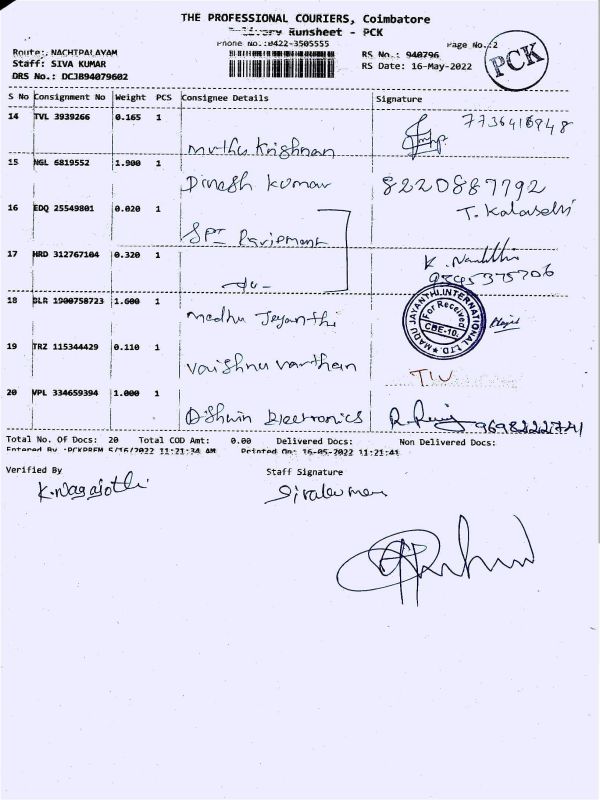 THE PROFESSIONAL COURIERS, Coimbatore
Delivery Runsheet - PCK
Phone No.:0422-3505555
Page No.:2
PCK
Route:. NACHIPALAYAM
Staff: SIVA KUMAR
DRS No.: DCJB94079602
RS No.: 940796
RS Date: 16-May-2022
S No Consignment No Weight PCS Consignee Details Signature
14 TVL 3939266 0.165 1 Muthu Krishnan
15 NGL 6819552 1.900 1 Dinesh kumar 8220887792
16 EDQ 25549801 0.020 1 SPT T. Kalaselvi
17 HRD 312767104 0.320 1 -do- K.
18 BLR 1900758723 1.600 1 Madhu Jeyanthi
MADU JAYANTHI INTERNATIONAL LTD.
For Received
CBE-10.
19 TRZ 115344429 0.110 1 Vaishnu varthan
20 VPL 334659394 1.000 1 Electronics R.
Total No. Of Docs: 20 Total COD Amt: 0.00 Delivered Docs: Non Delivered Docs:
Entered By :PCKPREM 5/16/2022 11:21:34 AM Printed On: 16-05-2022 11:21:41
Verified By Staff Signature
K.Nagajothi